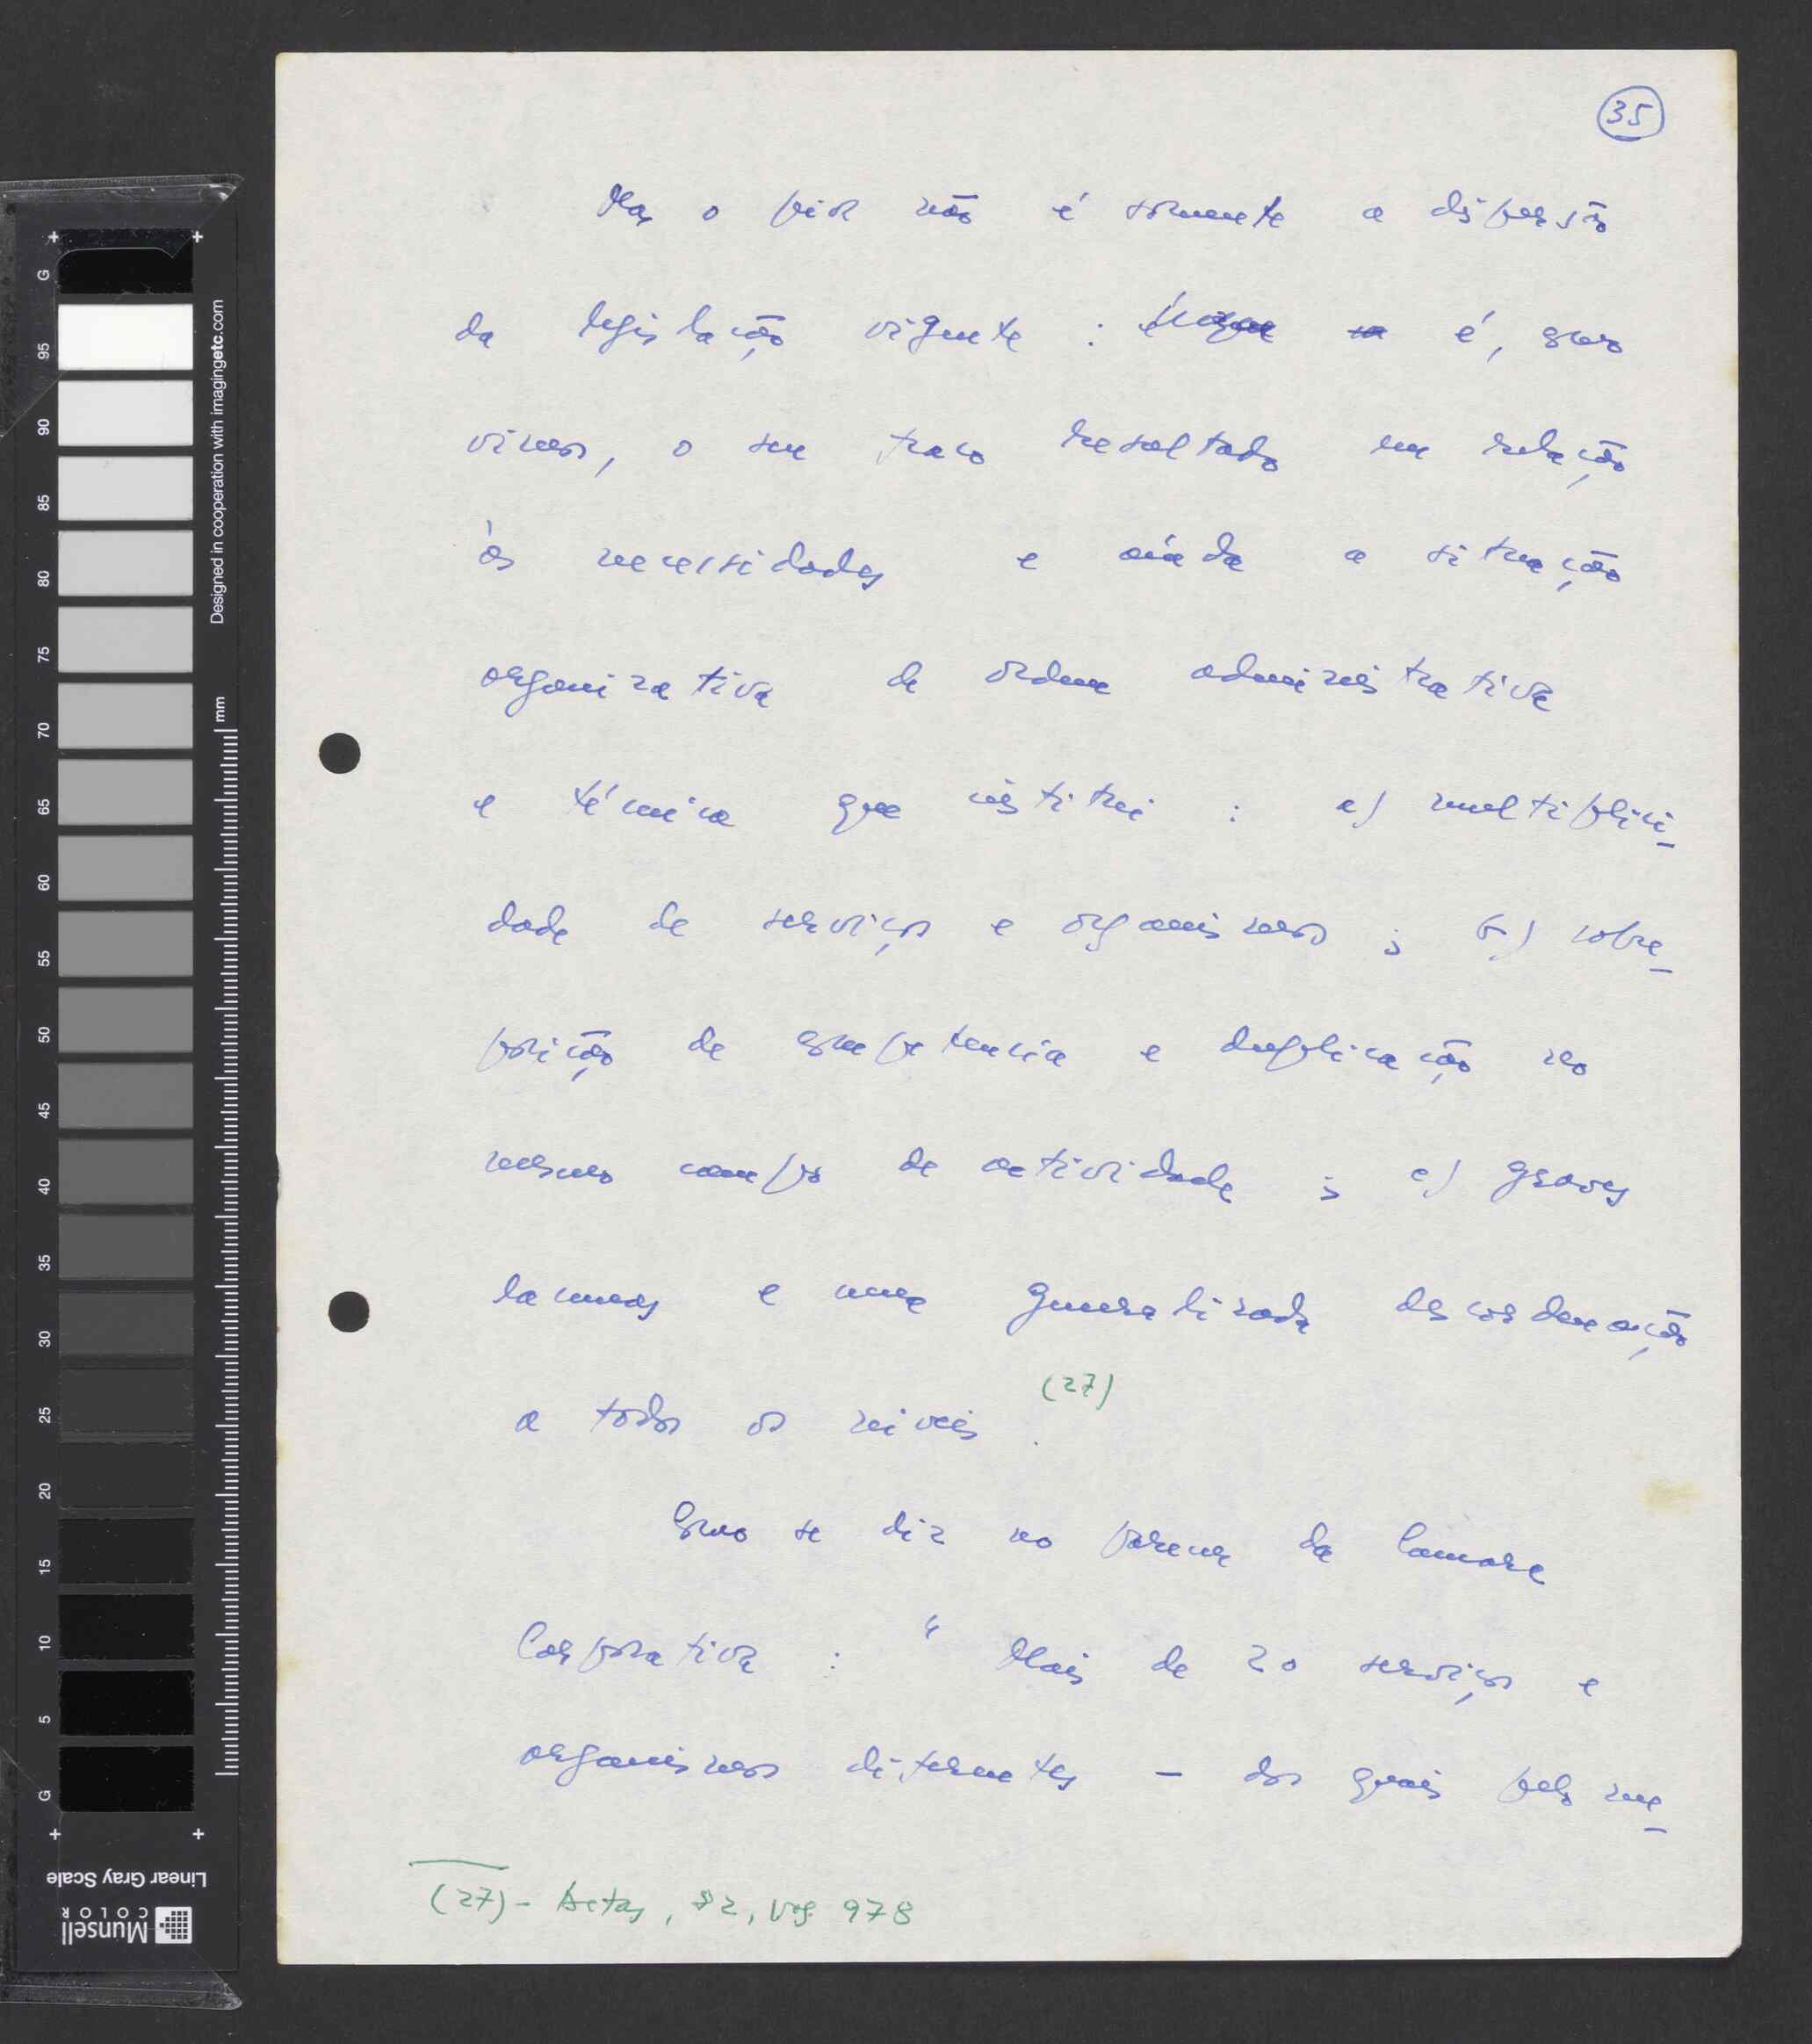 35
Mas o pior não é somente a dispersão
da legislação vigente : é, como
vimos, o seu fraco resultado em relação
às necessidades e ainda a situação
organizativa de ordem administrativa
e técnica que institui : a) multiplici-
dade de serviços e organismos ; b) sobre-
posição de competencia e duplicação no
mesmo campo de actividade ; c) graves
lacunas e uma generalizada descordenação
a todos os niveis . (27)
Como se diz no parecer da Camara
Corporativa : " Mais de 20 serviços e
organismos diferentes - dos quais pelo me-
(27) - Actas, 82, pag. 978
G
95
90
85
80
75
70
65
60
55
50
45
40
35
30
25
20
15
10
5
G
Designed in cooperation with imagingetc.com
mm
Linear Gray Scale
Munsell
COLOR